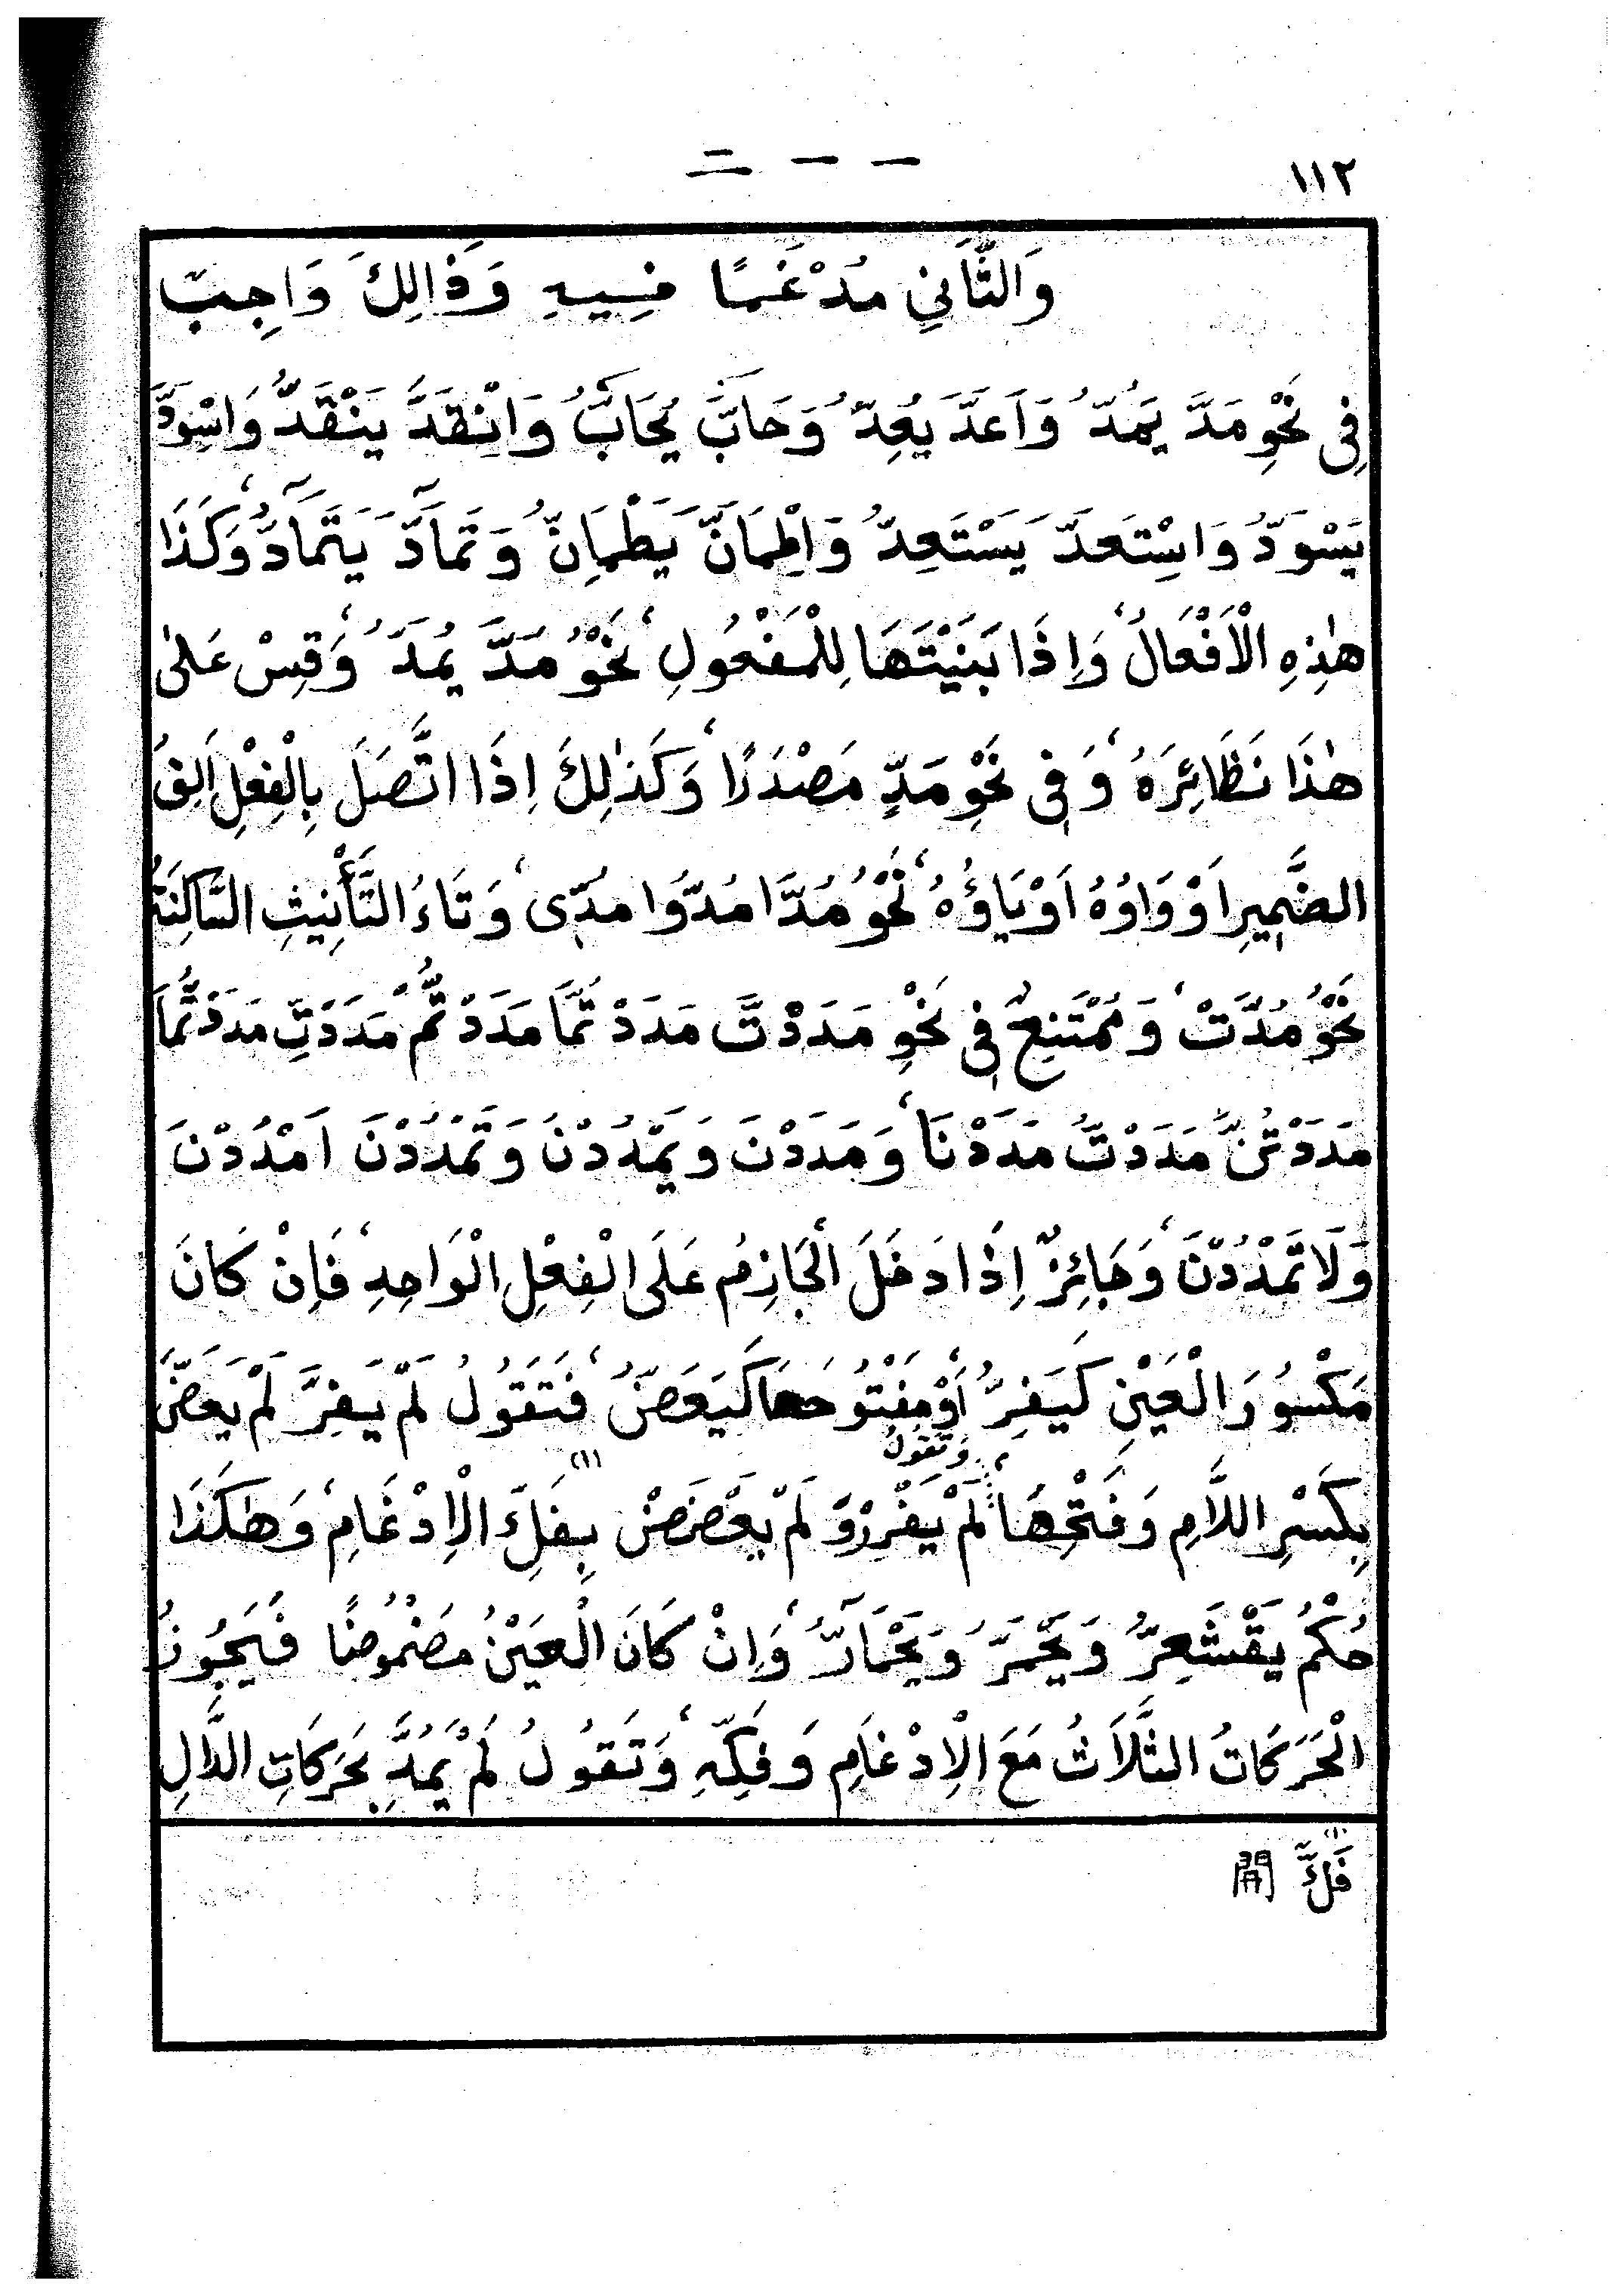 ١١٢
وَالثَّانِي مُدْغَمًا فِيهِ وَذَالِكَ وَاجِبٌ
فِى نَحْوِ مَدَّ يَمُدُّ وَاَعَدَّ يُعِدُّ وَحَابَّ يُحَابُّ وَانْقَدَّ يَنْقَدُّ وَاسْوَدَّ
يَسْوَدُّ وَاسْتَعَدَّ يَسْتَعِدُّ وَاطْمَاَنَّ يَطْمَاِنُّ وَتَمَآدَّ يَتَمَآدُّ وَكَذَا
هٰذِهِ الْاَفْعَالُ وَاِذَا بَنَيْتَهَا لِلْمَفْعُولِ نَحْوُ مُدَّ يُمَدُّ وَقِسْ عَلىٰ
هٰذَا نَظَائِرَهُ وَفِى نَحْوِ مَدٍّ مَصْدَرًا وَكَذٰلِكَ اِذَا اتَّصَلَ بِالْفِعْلِ اَلِفُ
الضَّمِيرِ اَوْ وَاوُهُ اَوْ يَاؤُهُ نَحْوُ مُدَّا مُدُّوا مُدِّى وَتَاءُ التَّأْنِيثِ السَّاكِنَةُ
نَحْوُ مُدَّتْ وَمُمْتَنِعٌ فِى نَحْوِ مَدَدْتَ مَدَدْتُمَا مَدَدْتُمْ مَدَدْتِ مَدَدْتُمَا
مَدَدْتُنَّ مَدَدْتُ مَدَدْنَا وَمَدَدْنَ وَيَمْدُدْنَ وَتَمْدُدْنَ اَمْدُدْنَ
وَلَا تَمْدُدْنَ وَجَائِزٌ اِذَا دَخَلَ الْجَازِمُ عَلَى الْفِعْلِ الْوَاحِدِ فَاِنْ كَانَ
مَكْسُورَ الْعَيْنِ كَيَفِرُّ اَوْ مَفْتُوحَهَا كَيَعَضُّ فَتَقُولُ لَمْ يَفِرَّ لَمْ يَعَضَّ
بِكَسْرِ اللَّامِ وَفَتْحِهَا وَتَقُولُ لَمْ يَفْرِرْ وَ لَمْ يَعْضَضْ بِفَكِّ الْاِدْغَامِ وَهٰكَذَا (١)
حُكْمُ يَقْشَعِرُّ وَيَحْمَرُّ وَيَحْمَآرُّ وَاِنْ كَانَ الْعَيْنُ مَضْمُومًا فَيَجُوزُ
الْحَرَكَاتُ الثَّلَاثُ مَعَ الْاِدْغَامِ وَفَكِّهِ وَتَقُولُ لَمْ يَمُدَّ بِحَرَكَاتِ الدَّالِ
(١) فَكَّ 開